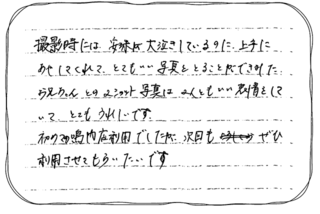 撮影時には、大泣きしているのに、上手に
あやしてくれて、とてもいい写真をとることができました。
お兄ちゃんとの2ショット写真はなんともいい表情をして
いて、とてもうれしいです。
初めての鳴内店利用でしたが、次回も ぜひ
利用させてもらいたいです